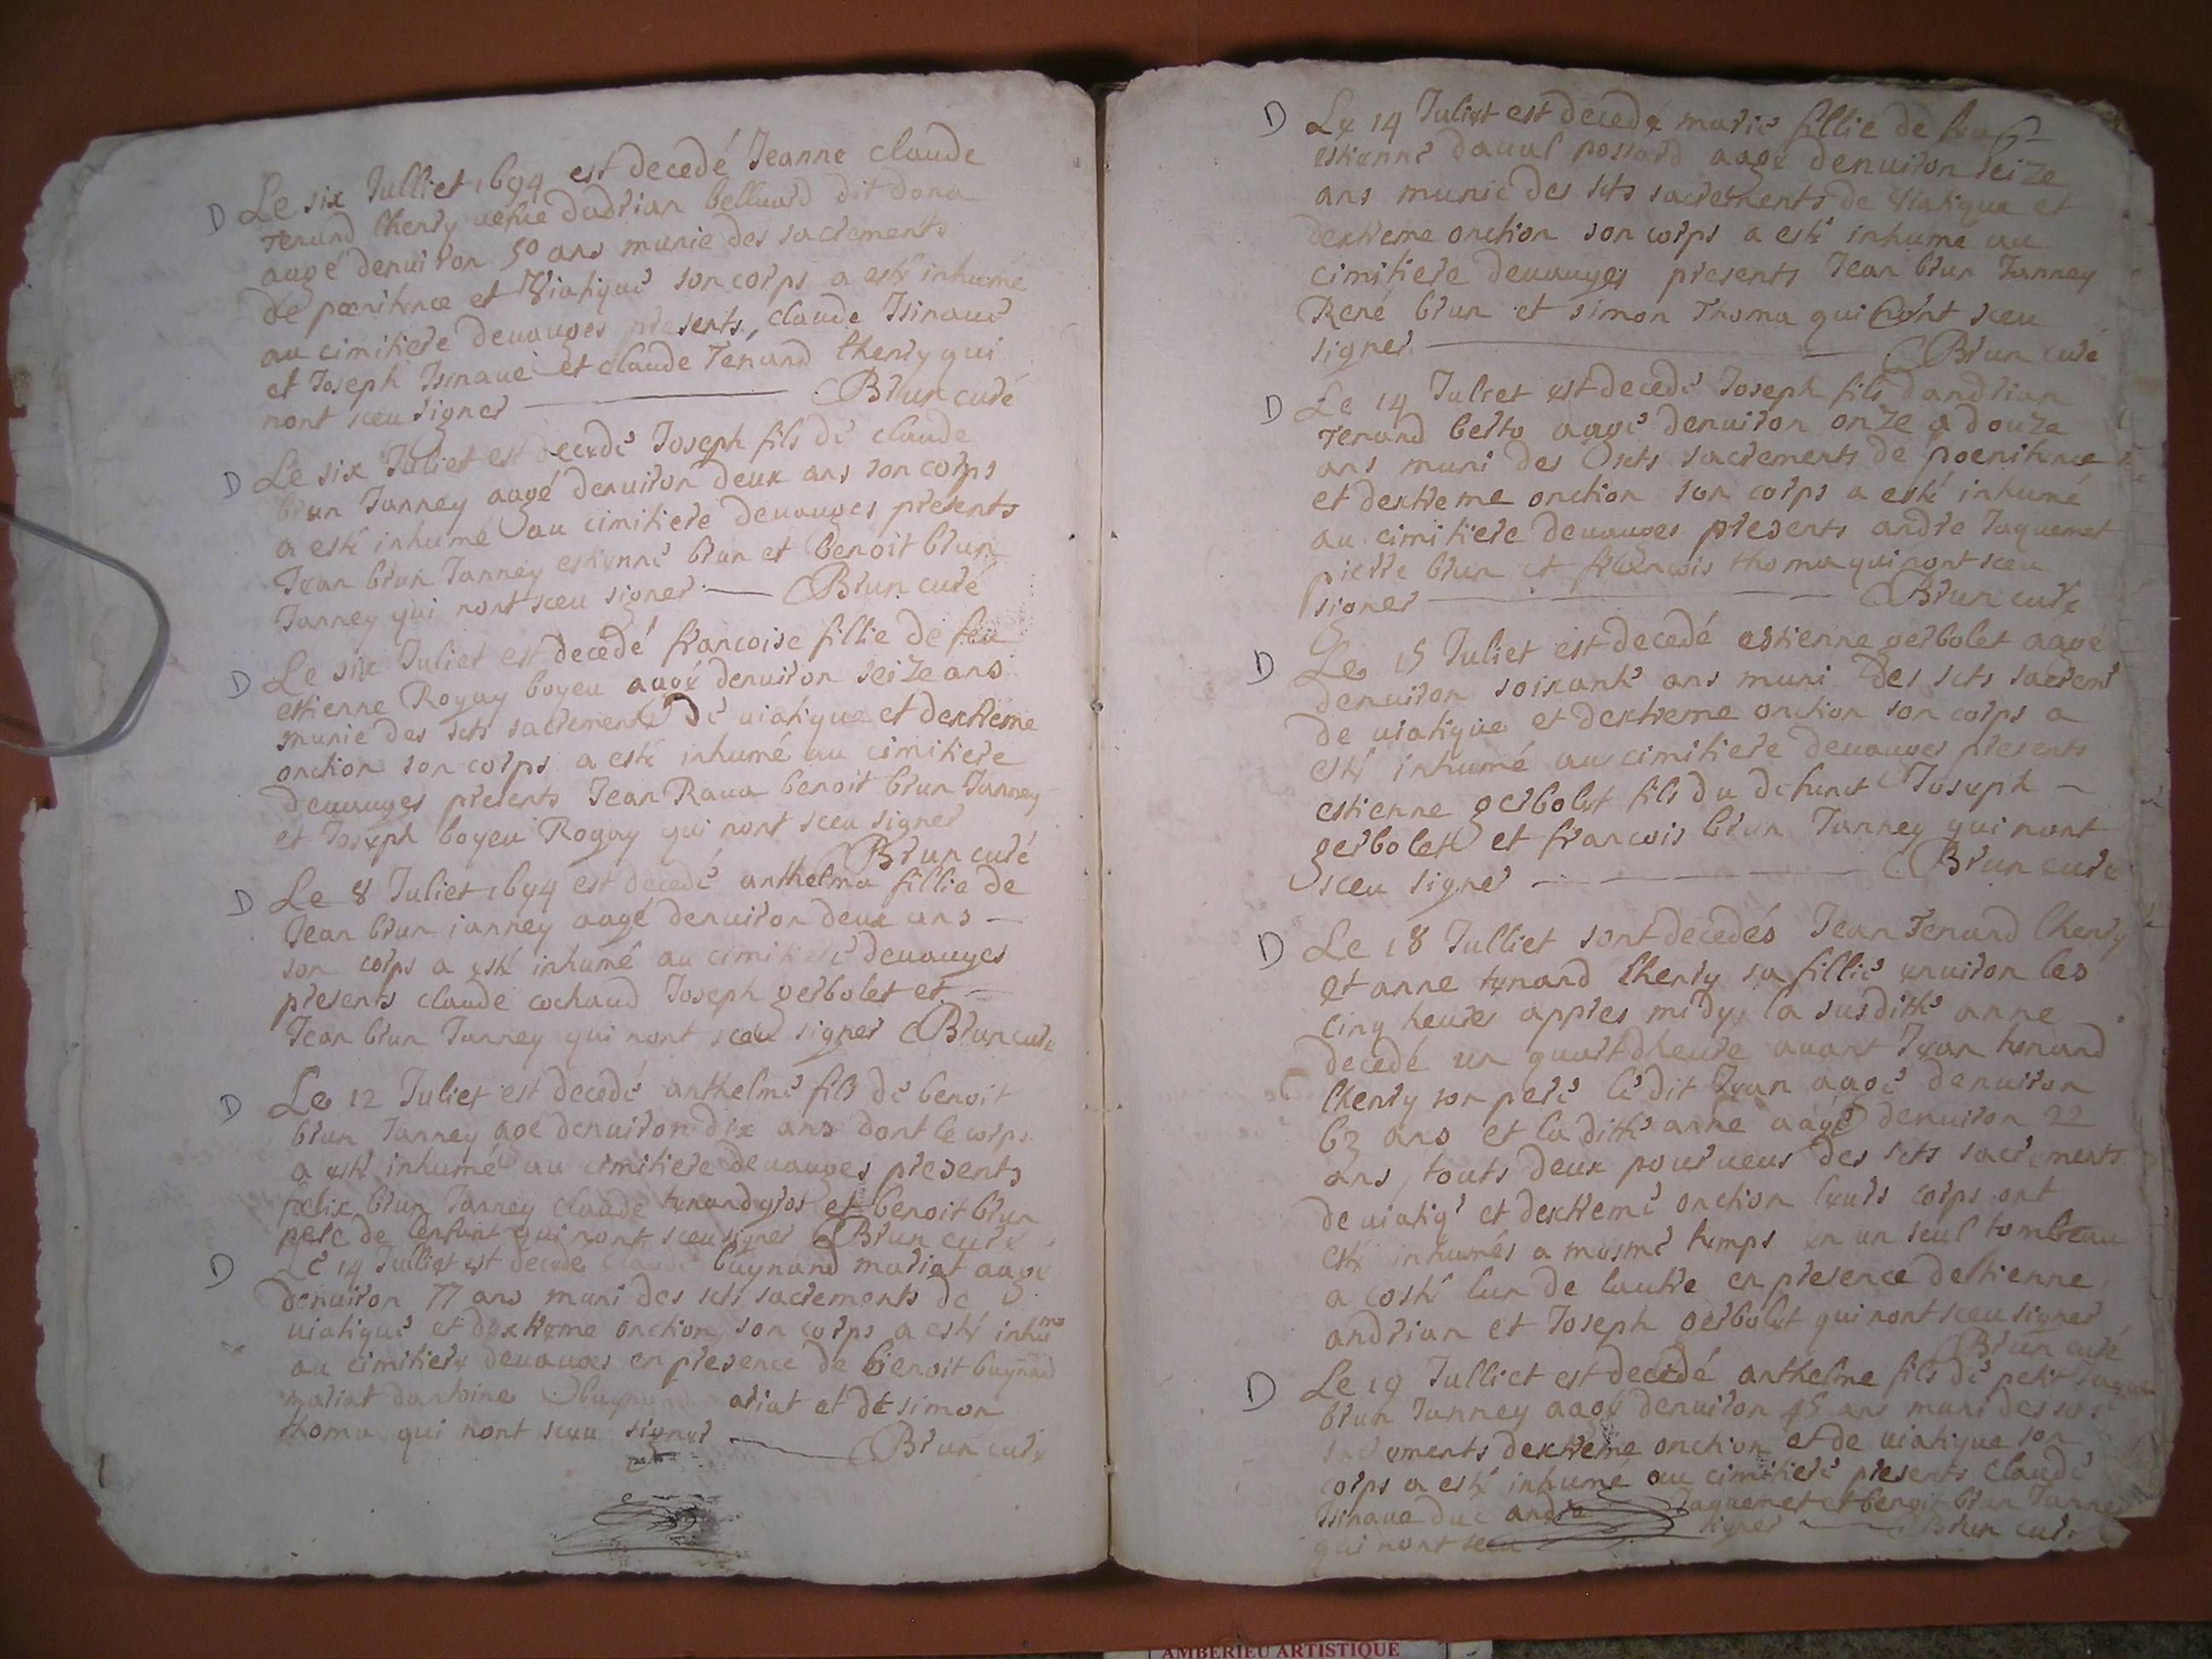 D Le six Julliet 1694 est decedé Jeanne Claude
Tenand lhenry vefue dadrian belluard dit dona
aagé denuiron 50 ans munie des sacrements
de pœnitence et Viatique son corps a esté inhumé
au cimitiere deuauges presents, claude Jsinaue
et Joseph Jsinaue et claude Tenand lhenry qui
nont sceu signer CBrun curé
D Le six Juliet est decedé Joseph fils de claude
brun Janney aagé denuiron deux ans son corps
a esté inhumé au cimitiere deuauges presents
Jean brun Janney estienne brun et benoit brun
Janney qui nont sceu signer CBrun curé
D Le six Juliet est decedé francoise fillie de feu
estienne Roguy boyeu aagé denuiron seize ans
munie des scts sacrements de uiatique et dextreme
onction son corps a esté inhumé au cimitiere
deuauges presents Jean Raua benoit brun Janney
et Joseph boyeu Roguy qui nont sceu signer
CBrun curé
D Le 8 Juliet 1694 est decedé anthelma fillie de
Jean brun ianney aagé denuiron deux ans
son corps a esté inhumé au cimitiere deuauges
presents claude cochaud Joseph gerbolet et
Jean brun Janney qui nont sceu signer CBrun curé
D Le 12 Juliet est decedé anthelme fils de benoit
brun Janney agé denuiron dix ans dont le corps
a esté inhumé au cimitiere deuauges presents
fœlix brun Janney claude tenand gros et benoit brun
pere de lenfant qui nont sceu signer CBrun curé
D Le 14 Julliet est decede claude buynand mariat aagé
denuiron 77 ans muni des scts sacrements de
uiatique et dextreme onction son corps a esté inhumé
au cimitiere deuauges en presence de benoit buynand
mariat dantoine buynand mariat et de simon
thoma qui nont sceu signer CBrun curé
D Le 14 Juliet est decedé marie fillie de feu
estienne daual possard aagé denuiron seize
ans munie des scts sacrements de Viatique et
dextreme onction son corps a esté inhumé au
cimitiere deuauges presents Jean brun Janney
René brun et simon Thoma qui nont sceu
signer CBrun curé
D Le 14 Juliet est decedé Joseph fils dandrian
Tenand berto aagé denuiron onze a douze
ans muni des scts sacrements de pœnitence
et dextreme onction son corps a esté inhumé
au cimitiere deuauges presents andre Jaquemet
pierre brun et francois thoma qui nont sceu
signer CBrun curé
D Le 15 Juliet est decedé estienne gerbolet aagé
denuiron soixante ans muni des scts sacremt
de uiatique et dextreme onction son corps a
esté inhumé au cimitiere deuauges presents
estienne gerbolet fils du defunct Joseph
gerbolet et francois brun Janney qui nont
sceu signer CBrun curé
D Le 18 Julliet sont decedés Jean Tenand lhenry
et anne tenand lhenry sa fillie enuiron les
cinq heures appres midy, la susditte anne
decedé un quart dheure auant Jean tenand
lhenry son pere le dit Jean aagé denuiron
63 ans et la ditte anne aagé denuiron 22
ans, touts deux pourueus des scts sacrements
de uiatiq et dextreme onction leurs corps ont
esté inhumés a mesme temps en un seul tombeau
a costé lun de lautre en presence destienne
andrian et Joseph gerbolet qui nont sceu signer
CBrun curé
D Le 19 Julliet est decedé anthelme fils de petit Jaque
brun Janney aagé denuiron 45 ans muni des scts
sacrements dextreme onction et de uiatique son
corps a esté inhumé au cimitiere presents claude
Jsinaue duc andre Jaquemet et benoit brun Janney
qui nont sceu signer CBrun curé
AMBERIEU ARTISTIQUE